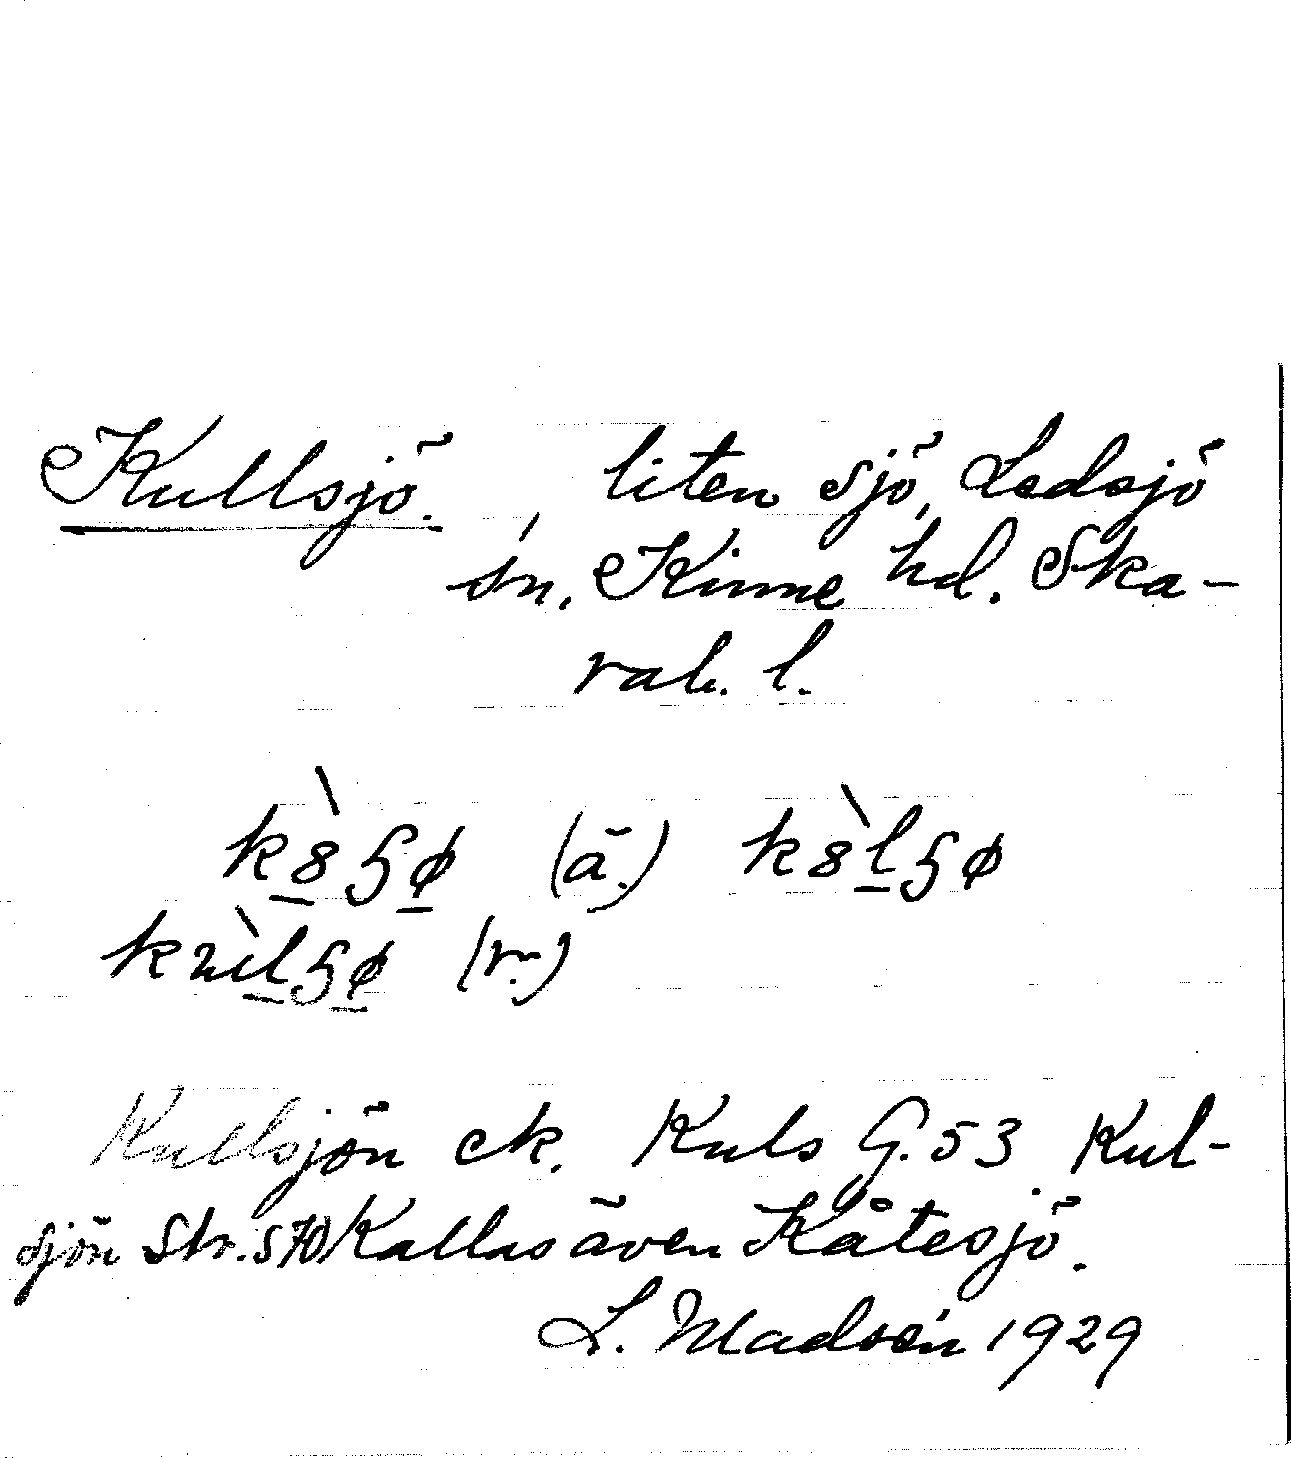 Kullsjö. , liten sjö, Ledsjö
sn. Kinne hd. Ska-
rab. l.
(ä.)
(r.)
Kullsjön ek. Kuls G. 53 Kul-
sjön Str. 570 Kallas även Kåtesjö.
L. Madsén 1929